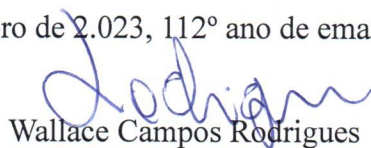 ro de 2.023, 112º ano de ema
Rodrigues
Wallace Campos Rodrigues